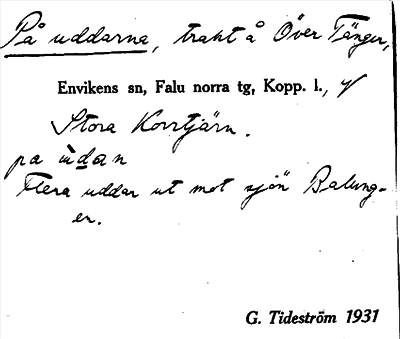 På uddarna, trakt å Över Tänger,
Envikens sn, Falu norra tg, Kopp. l.,
Stora Korrtjärn.
pa ùdan
Flera uddar ut mot sjön Balung-
en.
G. Tideström 1931